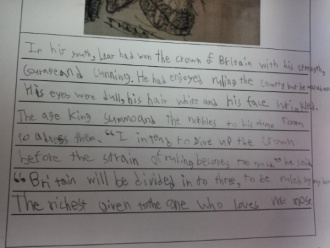 In his youth, Lear had won the crown of Britain with his strength,
courage and cunning. He had enjoyed ruling the country but he
His eyes were dull, his hair white and his face wrinkled.
The age King summoand the nobles to his throne room
to adress them. "I intend to give up the crown
before the strain of ruling becomes too much" he said
"Britain will be divided in to three, to be ruled by my
The richest given to the one who loves me most